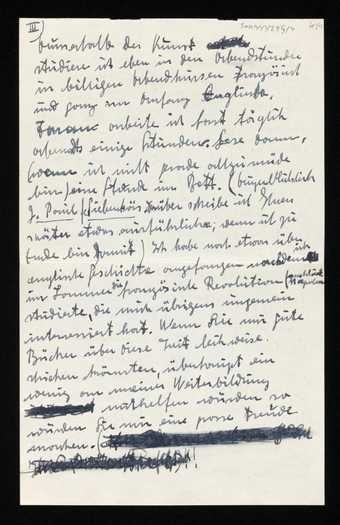 III
Ausserhalb der Kunst
studiere ich eben in den Abendstunden
in billigen Abendkursen Französisch
und ganz am Anfang Englisch.
arbeite ich fast täglich
abends einige Stunden. Lese dann,
(wenn ich nicht gerade allzumüde
bin) eine Stunde im Bett. (augenblicklich
J. Paul, Siebenkäs darüber schreibe ich Ihnen
später etwas ausführlicher, wenn ich zu
Ende bin damit) Ich habe noch etwas über
englische Geschichte angefangen nachdem ich
im Sommer die französische Revolution
studierte, die mich übrigens ungemein
interessiert hat. Wenn Sie mir gute
Bücher über diese Zeit leihweise
schicken könnten, überhaupt ein
wenig an meiner Weiterbildung
mithelfen würden so
würden Sie mir eine grosse Freude
machen.